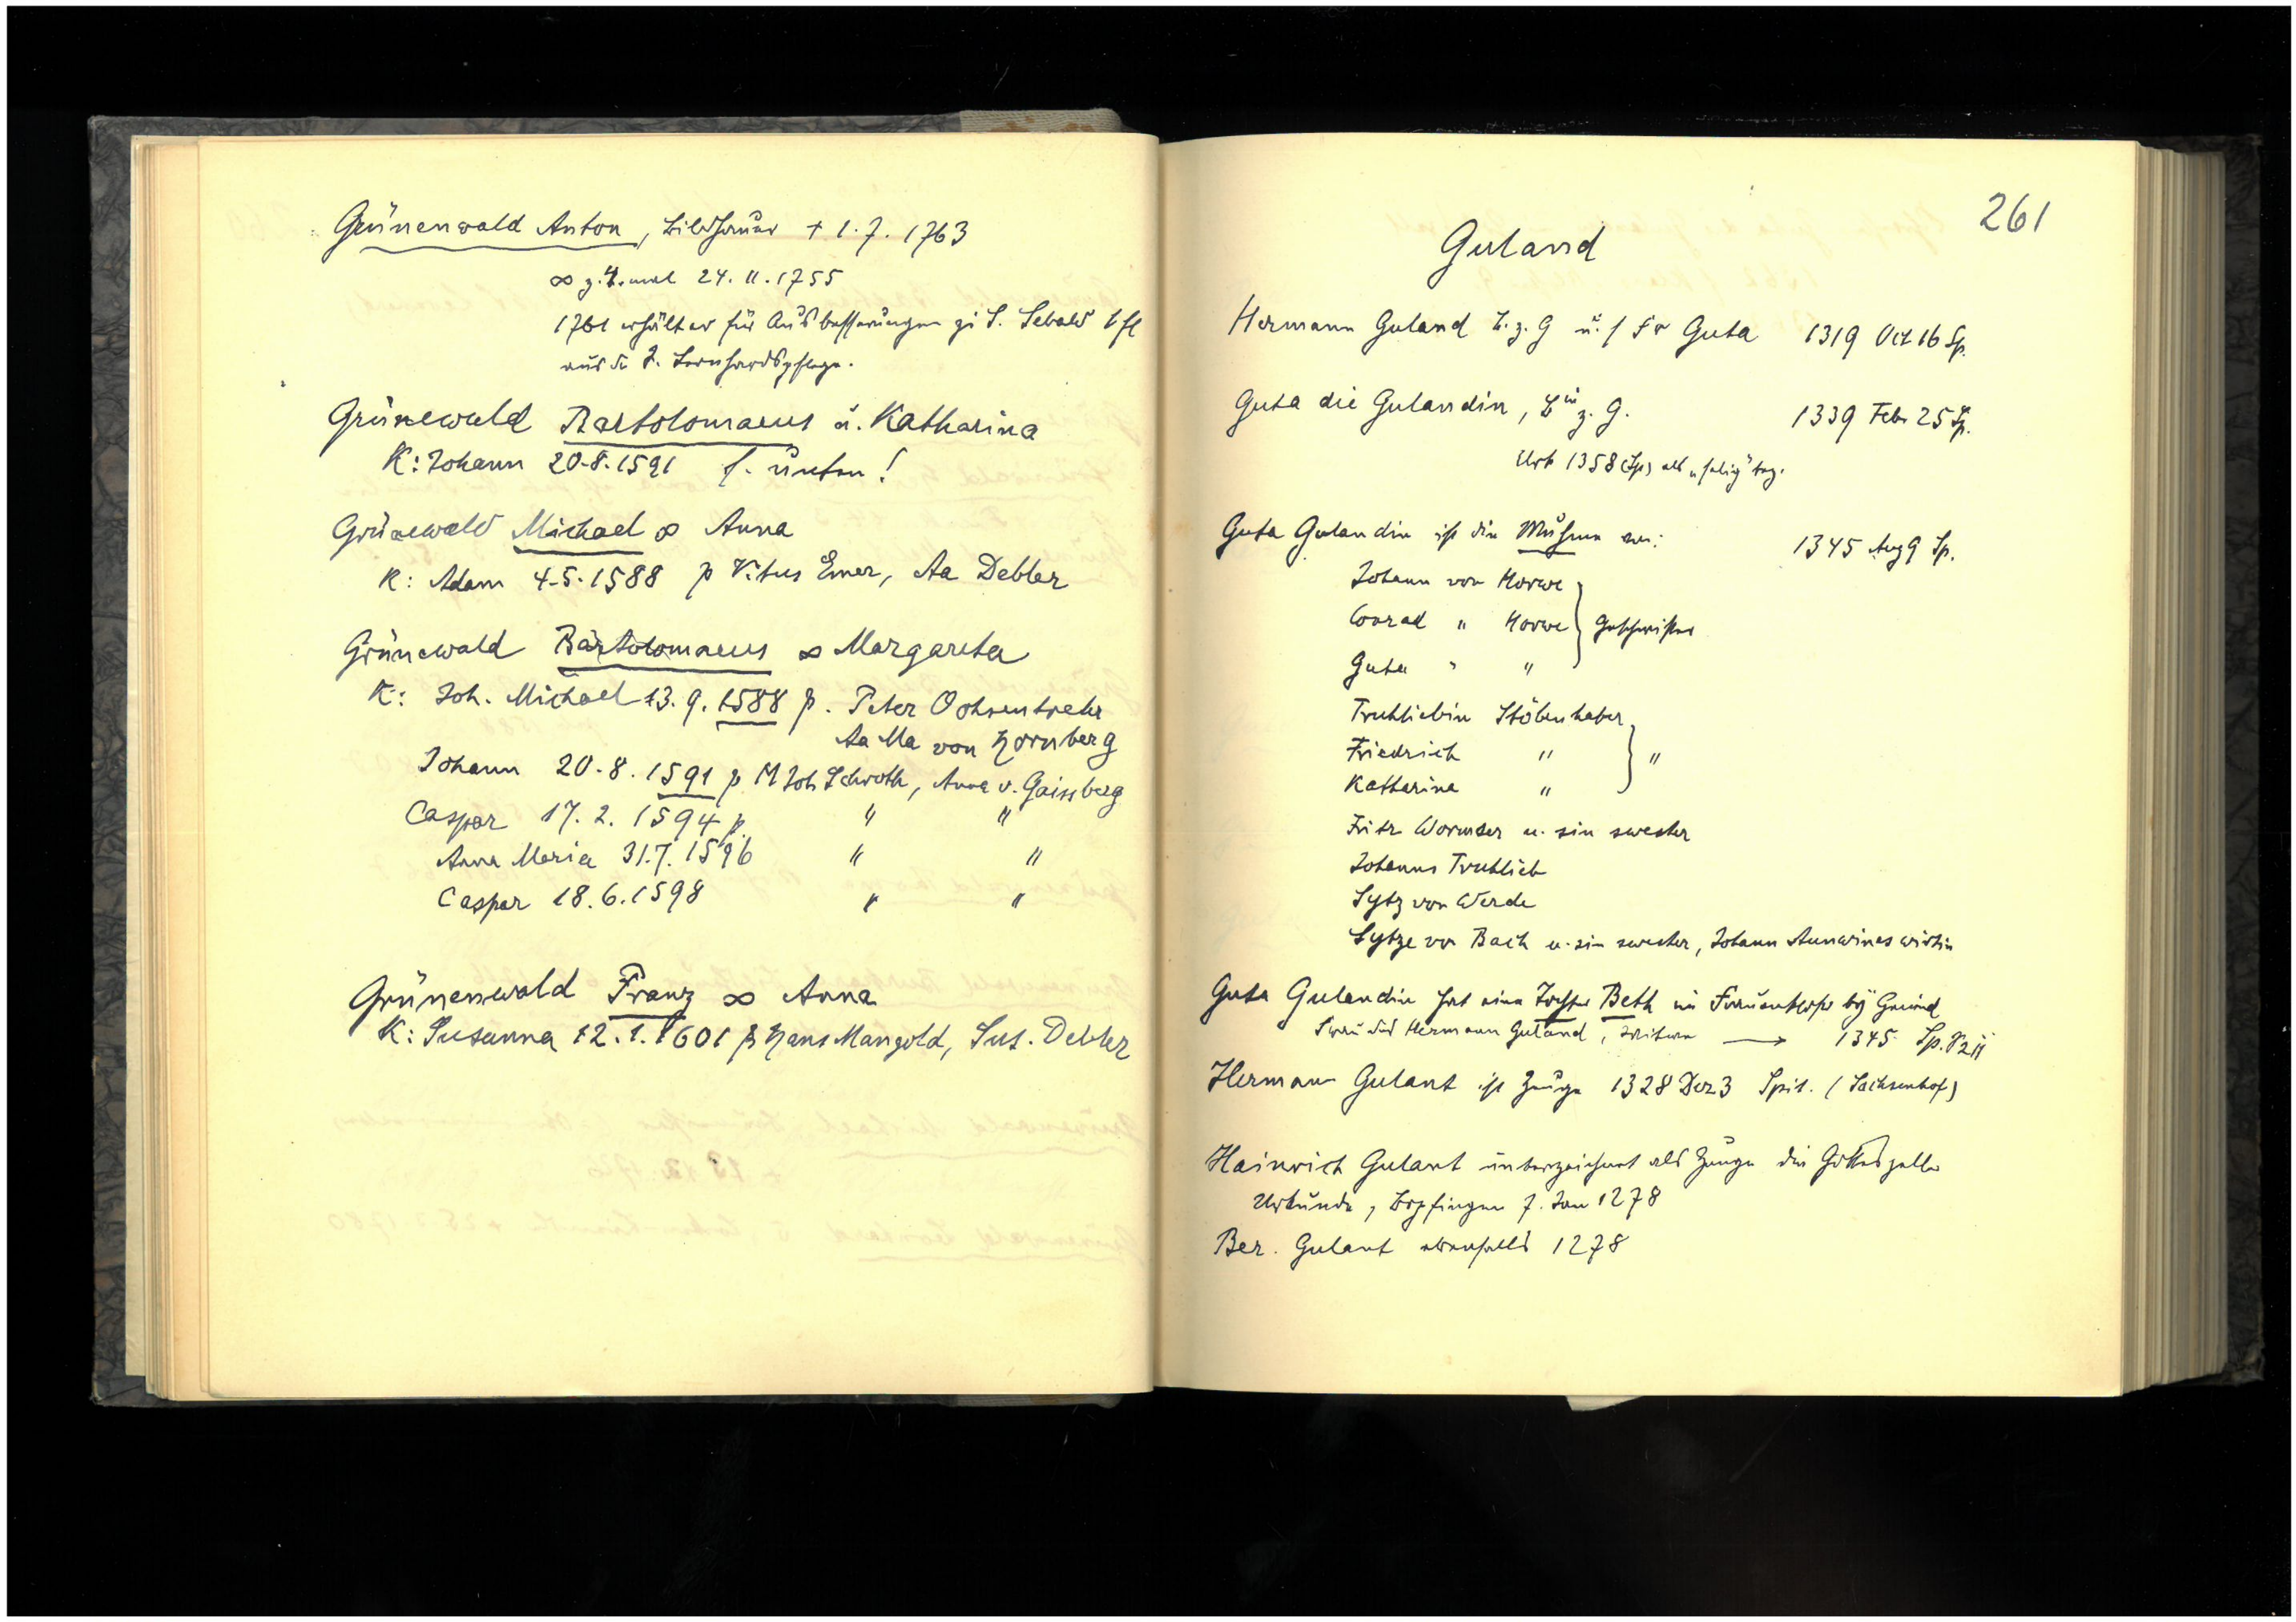 Grünenwald Anton, Bildhauer + 1.7.1763
∞ z. 4. mal 24.11.1755
1761 erhält er für Ausbesserungen zu S. Sebald 1 fl
aus der S. Leonhardspflege.
Grünewald Bartolomaeus u. Katharina
K: Johann 20.8.1591 s. unten!
Grünewald Michael ∞ Anna
K: Adam 4.5.1588 p Vitus Emer, Aa Debler
Grünewald Bartolomaeus ∞ Margareta
K: Joh. Michael 13.9.1588 p. Peter
Aa Ma von Hornberg
Johann 20.8.1591 p M Joh Schroth, Anna v. Gaissberg
Caspar 17.2.1594 p. " "
Anna Maria 31.7.1596 " "
Caspar 18.6.1598 " "
Grünenwald Franz ∞ Anna
K: Susanna 12.1.1601 p Hans Mangold, Sus. Debler
261
Guland
Hermann Guland B. z. G u. s Fr Guta 1319 Oct 16 Sp.
Guta die Gulandin, Bin z. G. 1339 Feb 25 Sp.
Urk 1358 (Sp) als "selig" bez.
Guta Gulandin ist die Muhme von: 1345 Aug 9 Sp.
Johann von Horwe
Conrad " Horwe } Geschwister
Guta " "
Trutliebin Stöbenhaber
Friedrich " } "
Katharina "
Fritz Wormser u. sin swester
Johanns Trutlieb
Sytz von Werde
Sytze von Bach u. sin swester, Johann wirtin
Guta Gulandin hat eine Tochter Beth im Frauenkloster by Gmünd
Frau des Hermann Guland, Witwe → 1345 Sp.
Hermann Gulant ist Zeuge 1328 Dez 3 Spit. (Sachsenhof)
Hainrich Gulant unterzeichnet als Zeuge die Gotteszeller
Urkunde, Bopfingen 7. Jan 1278
Ber. Gulant ebenfalls 1278